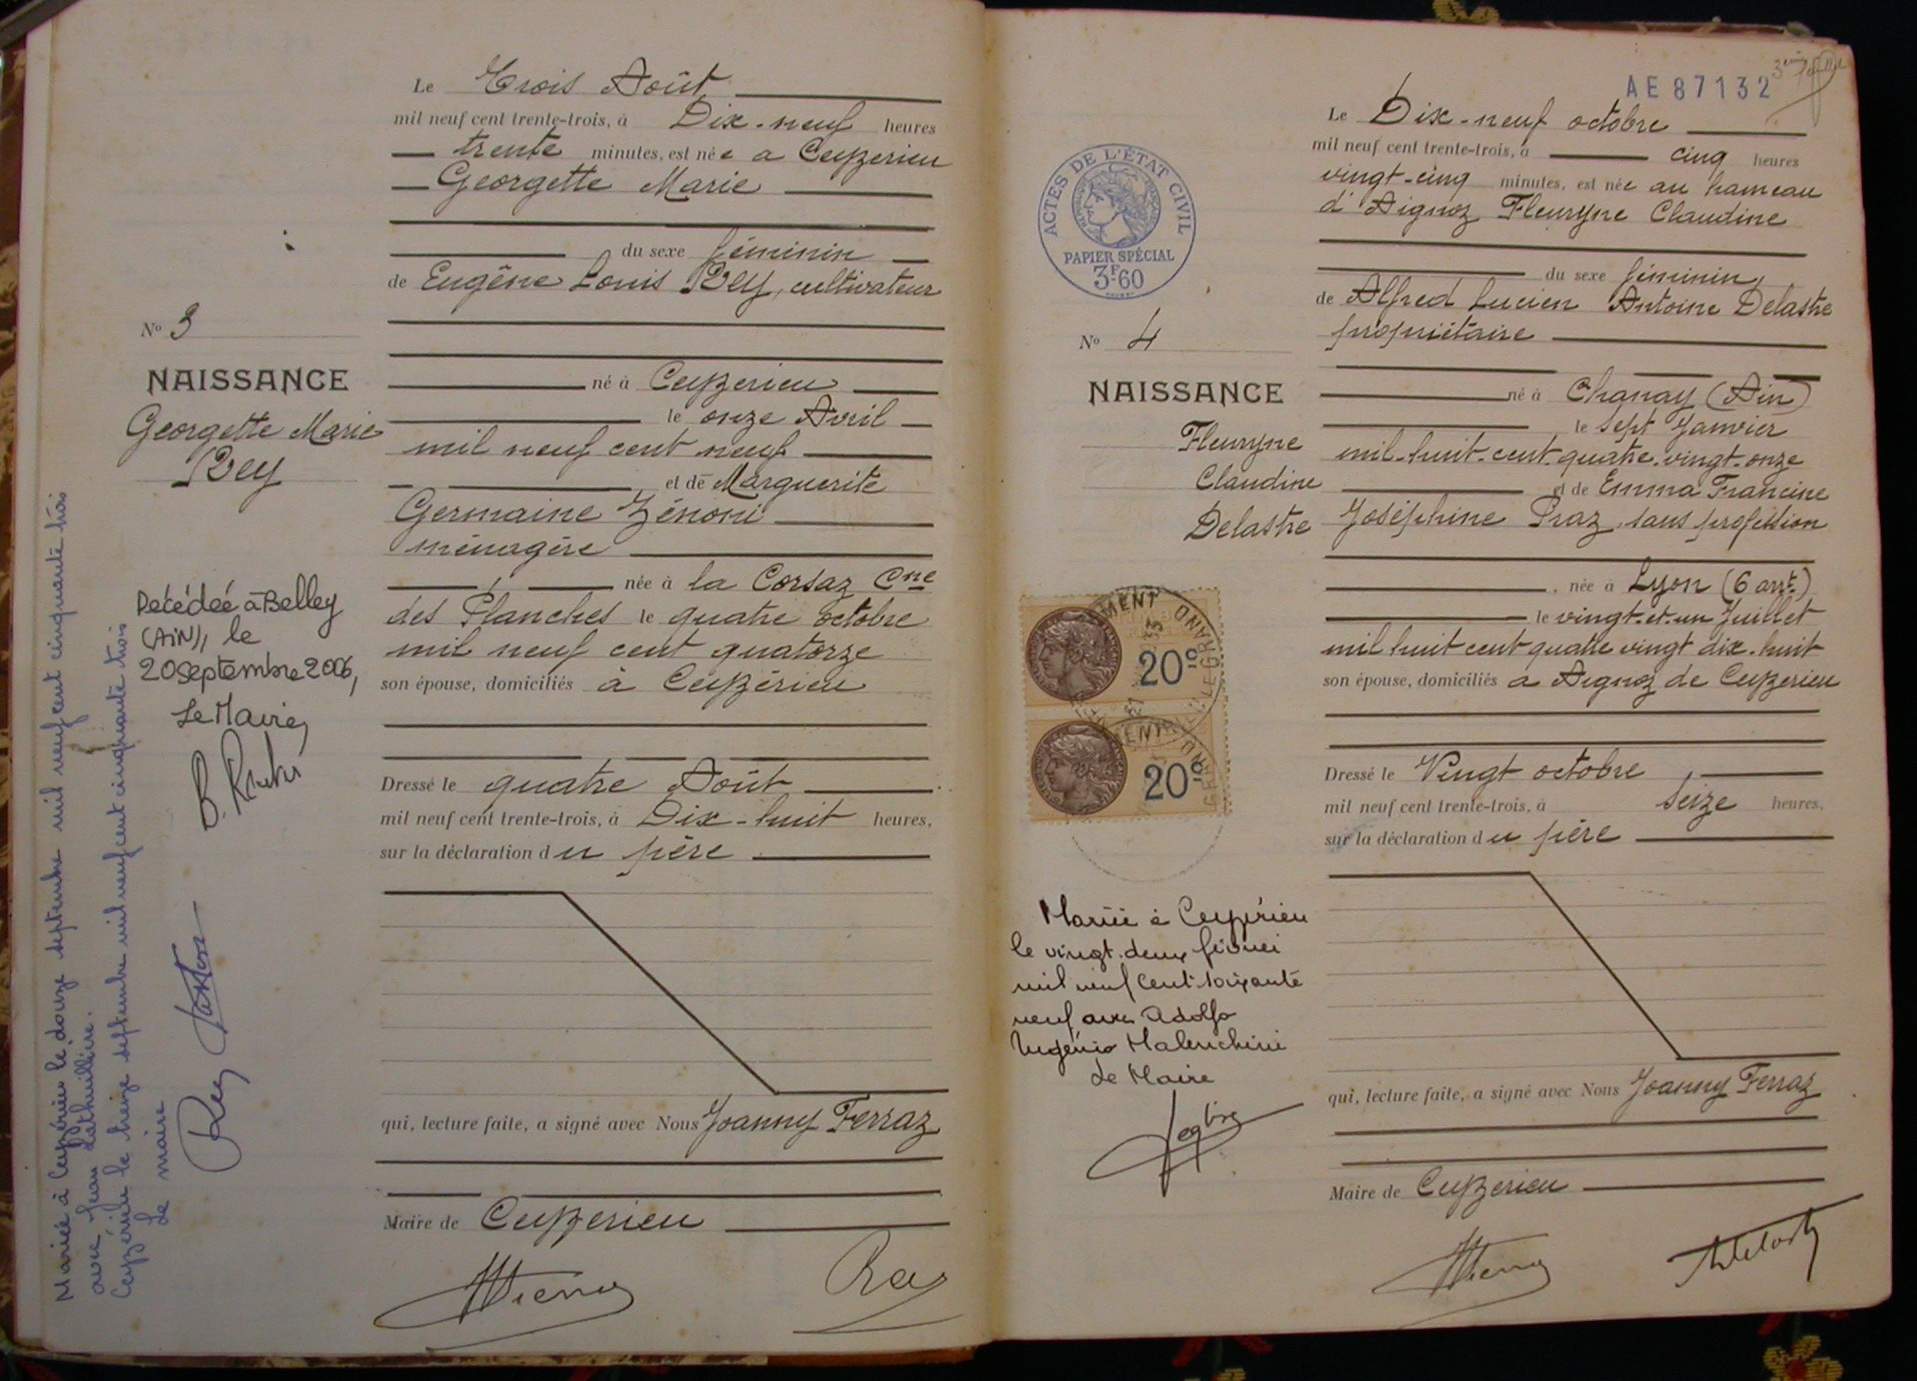 Le Trois Août
mil neuf cent trente-trois, à Dix-neuf heures
trente minutes, est née a Ceyzerieu
Georgette Marie
du sexe féminin
de Eugêne Louis Rey, cultivateur
né à Ceyzerieu
le onze Avril
mil neuf cent neuf
et de Marguerite
Germaine Zénoni
ménagère
née à la Corsaz Cne
des Planches le quatre octobre
mil neuf cent quatorze
son épouse, domiciliés à Ceyzérieu
Dressé le quatre Août
mil neuf cent trente-trois, à Dix-huit heures,
sur la déclaration du père
qui, lecture faite, a signé avec Nous Joanny Ferraz
Maire de Ceyzerieu
Rey
No 3
NAISSANCE
Georgette Marie
Rey
Décédée à Belley
(AIN), le
20 septembre 2006,
Le Maire,
Mariée à Ceyzérieu le douze septembre mil neuf cent cinquante trois
avec Jean Lathuilière.
Ceyzérieu le treize septembre mil neuf cent cinquante trois
Le maire
Rey
AE 87132
Le Dix-neuf octobre
mil neuf cent trente-trois, à cinq heures
vingt-cinq minutes, est née au hameau
d'Aignoz Fleuryne Claudine
du sexe féminin
de Alfred Lucien Antoine Delastre
propriétaire
né à Chanay (Ain)
le sept Janvier
mil-huit-cent-quatre-vingt-onze
et de Emma Francine
Joséphine Praz, sans profession
, née à Lyon (6 arrt.)
le vingt-et-un Juillet
mil huit cent quatre vingt dix-huit
son épouse, domiciliés à Aignoz de Ceyzerieu
Dressé le Vingt octobre
mil neuf cent trente-trois, à seize heures,
sur la déclaration du père
qui, lecture faite, a signé avec Nous Joanny Ferraz
Maire de Ceyzerieu
ACTES DE L'ÉTAT CIVIL
PAPIER SPÉCIAL
3F60
No 4
NAISSANCE
Fleuryne
Claudine
Delastre
20c
20c
Mariée à Ceyzérieu
le vingt-deux février
mil neuf cent soixante
neuf avec Adolfo
Eugénio Malenchini
Le Maire